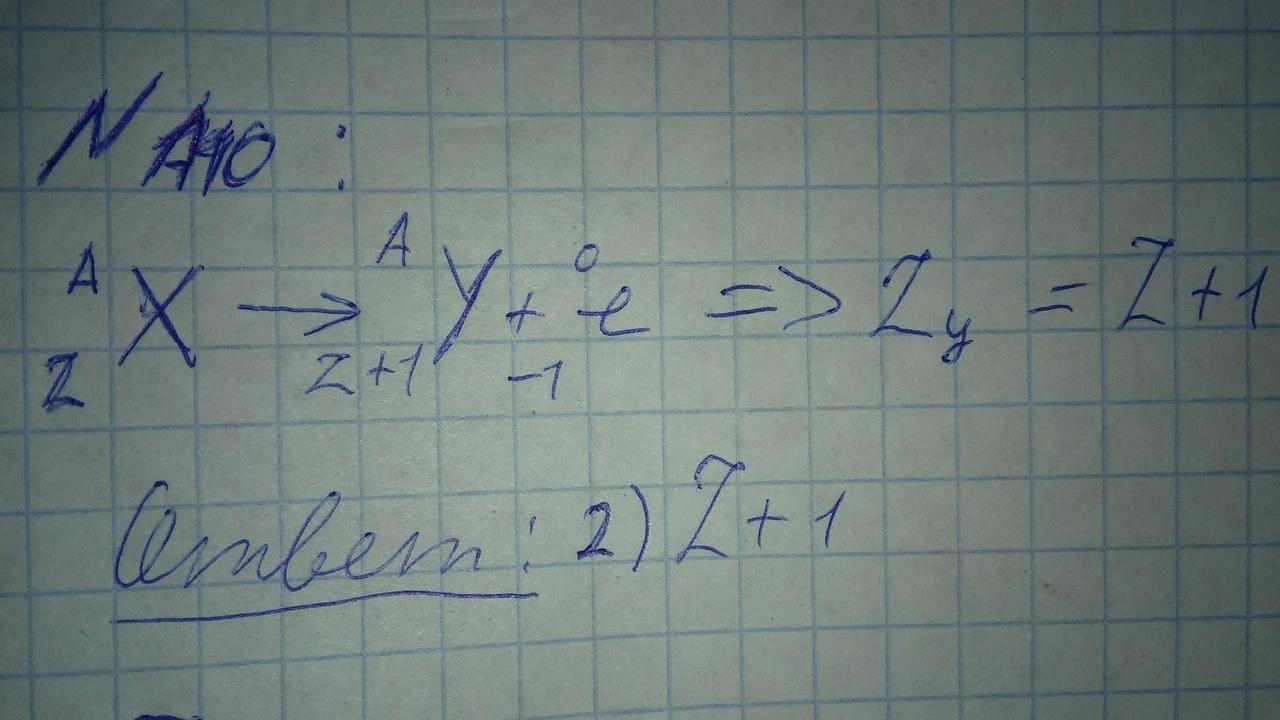 N A10 :
ᴬ_Z X → ᴬ_{Z+1} Y + ⁰_{-1} e => Z_y = Z + 1
Ответ: 2) Z + 1